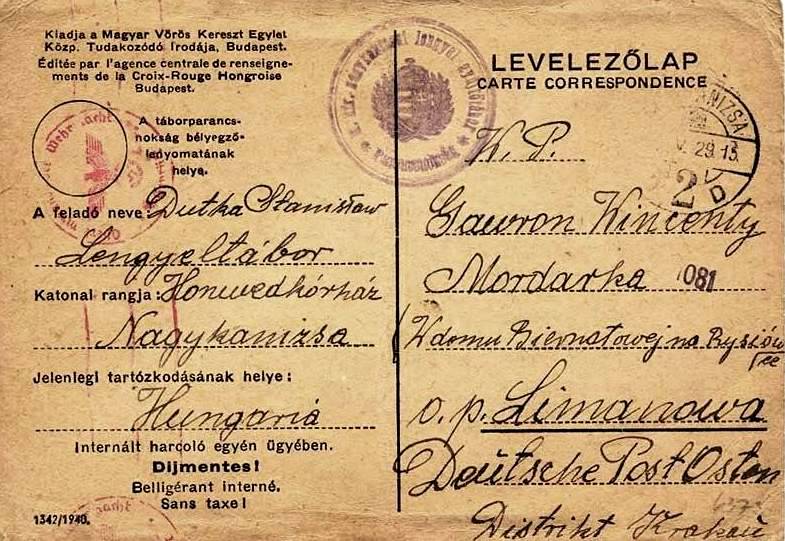 Kiadja a Magyar Vörös Kereszt Egylet
Közp. Tudakozódó Irodája, Budapest.
Éditée par l'agence centrale de renseigne-
ments de la Croix-Rouge Hongroise
Budapest.
A táborparancs-
nokság bélyegző-
lenyomatának
helye.
A feladó neve: Dutka Stanisław
Lengyeltábor
Katonai rangja: Honwedkórház
Nagykanizsa
Jelenlegi tartózkodásának helye:
Hungaria
Internált harcoló egyén ügyében.
Díjmentes!
Belligérant interné.
Sans taxe!
1342/1940.
LEVELEZŐLAP
CARTE CORRESPONDENCE
NIZSA
29. 15.
2
D
W. P.
Gawron Wincenty
Mordarka 081
W domu Biernatowej na Rysiów
ce
o. p. Limanowa
Deutsche Post Osten
Distrikt Krakau